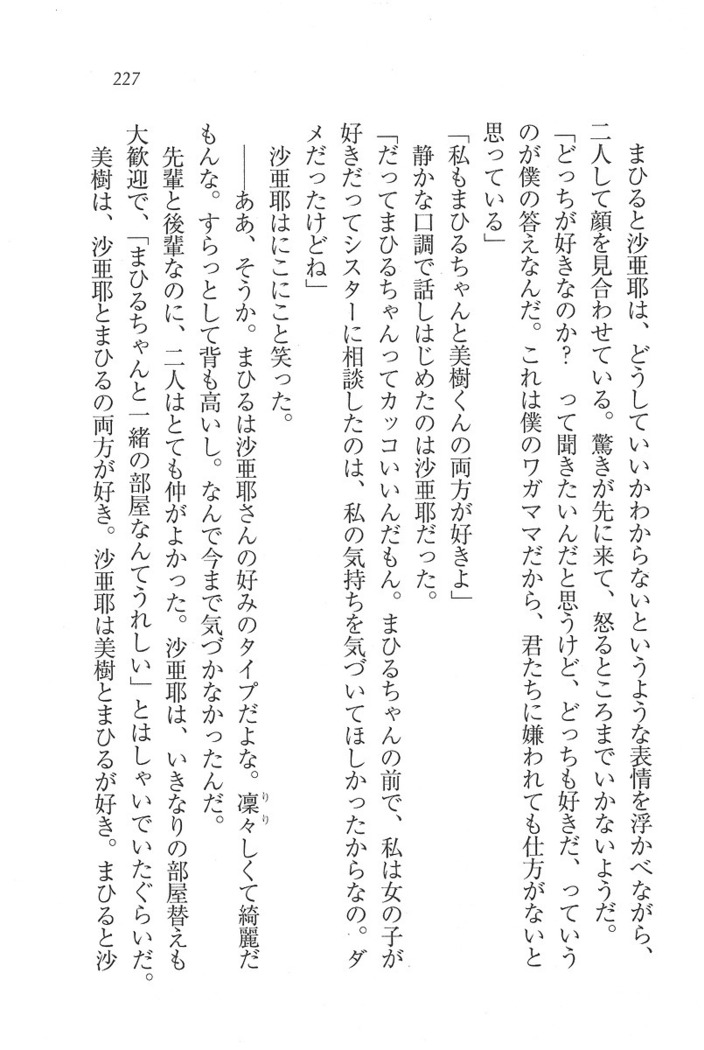 227
まひると沙亜耶は、どうしていいかわからないというような表情を浮かべながら、
二人して顔を見合わせている。驚きが先に来て、怒るところまでいかないようだ。
「どっちが好きなのか？　って聞きたいんだと思うけど、どっちも好きだ、っていう
のが僕の答えなんだ。これは僕のワガママだから、君たちに嫌われても仕方がないと
思っている」
「私もまひるちゃんと美樹くんの両方が好きよ」
静かな口調で話しはじめたのは沙亜耶だった。
「だってまひるちゃんってカッコいいんだもん。まひるちゃんの前で、私は女の子が
好きだってシスターに相談したのは、私の気持ちを気づいてほしかったからなの。ダ
メだったけどね」
沙亜耶はにこにこと笑った。
――ああ、そうか。まひるは沙亜耶さんの好みのタイプだよな。凜々しくて綺麗だ
りり
もんな。すらっとして背も高いし。なんで今まで気づかなかったんだ。
先輩と後輩なのに、二人はとても仲がよかった。沙亜耶は、いきなりの部屋替えも
大歓迎で、「まひるちゃんと一緒の部屋なんてうれしい」とはしゃいでいたぐらいだ。
美樹は、沙亜耶とまひるの両方が好き。沙亜耶は美樹とまひるが好き。まひると沙